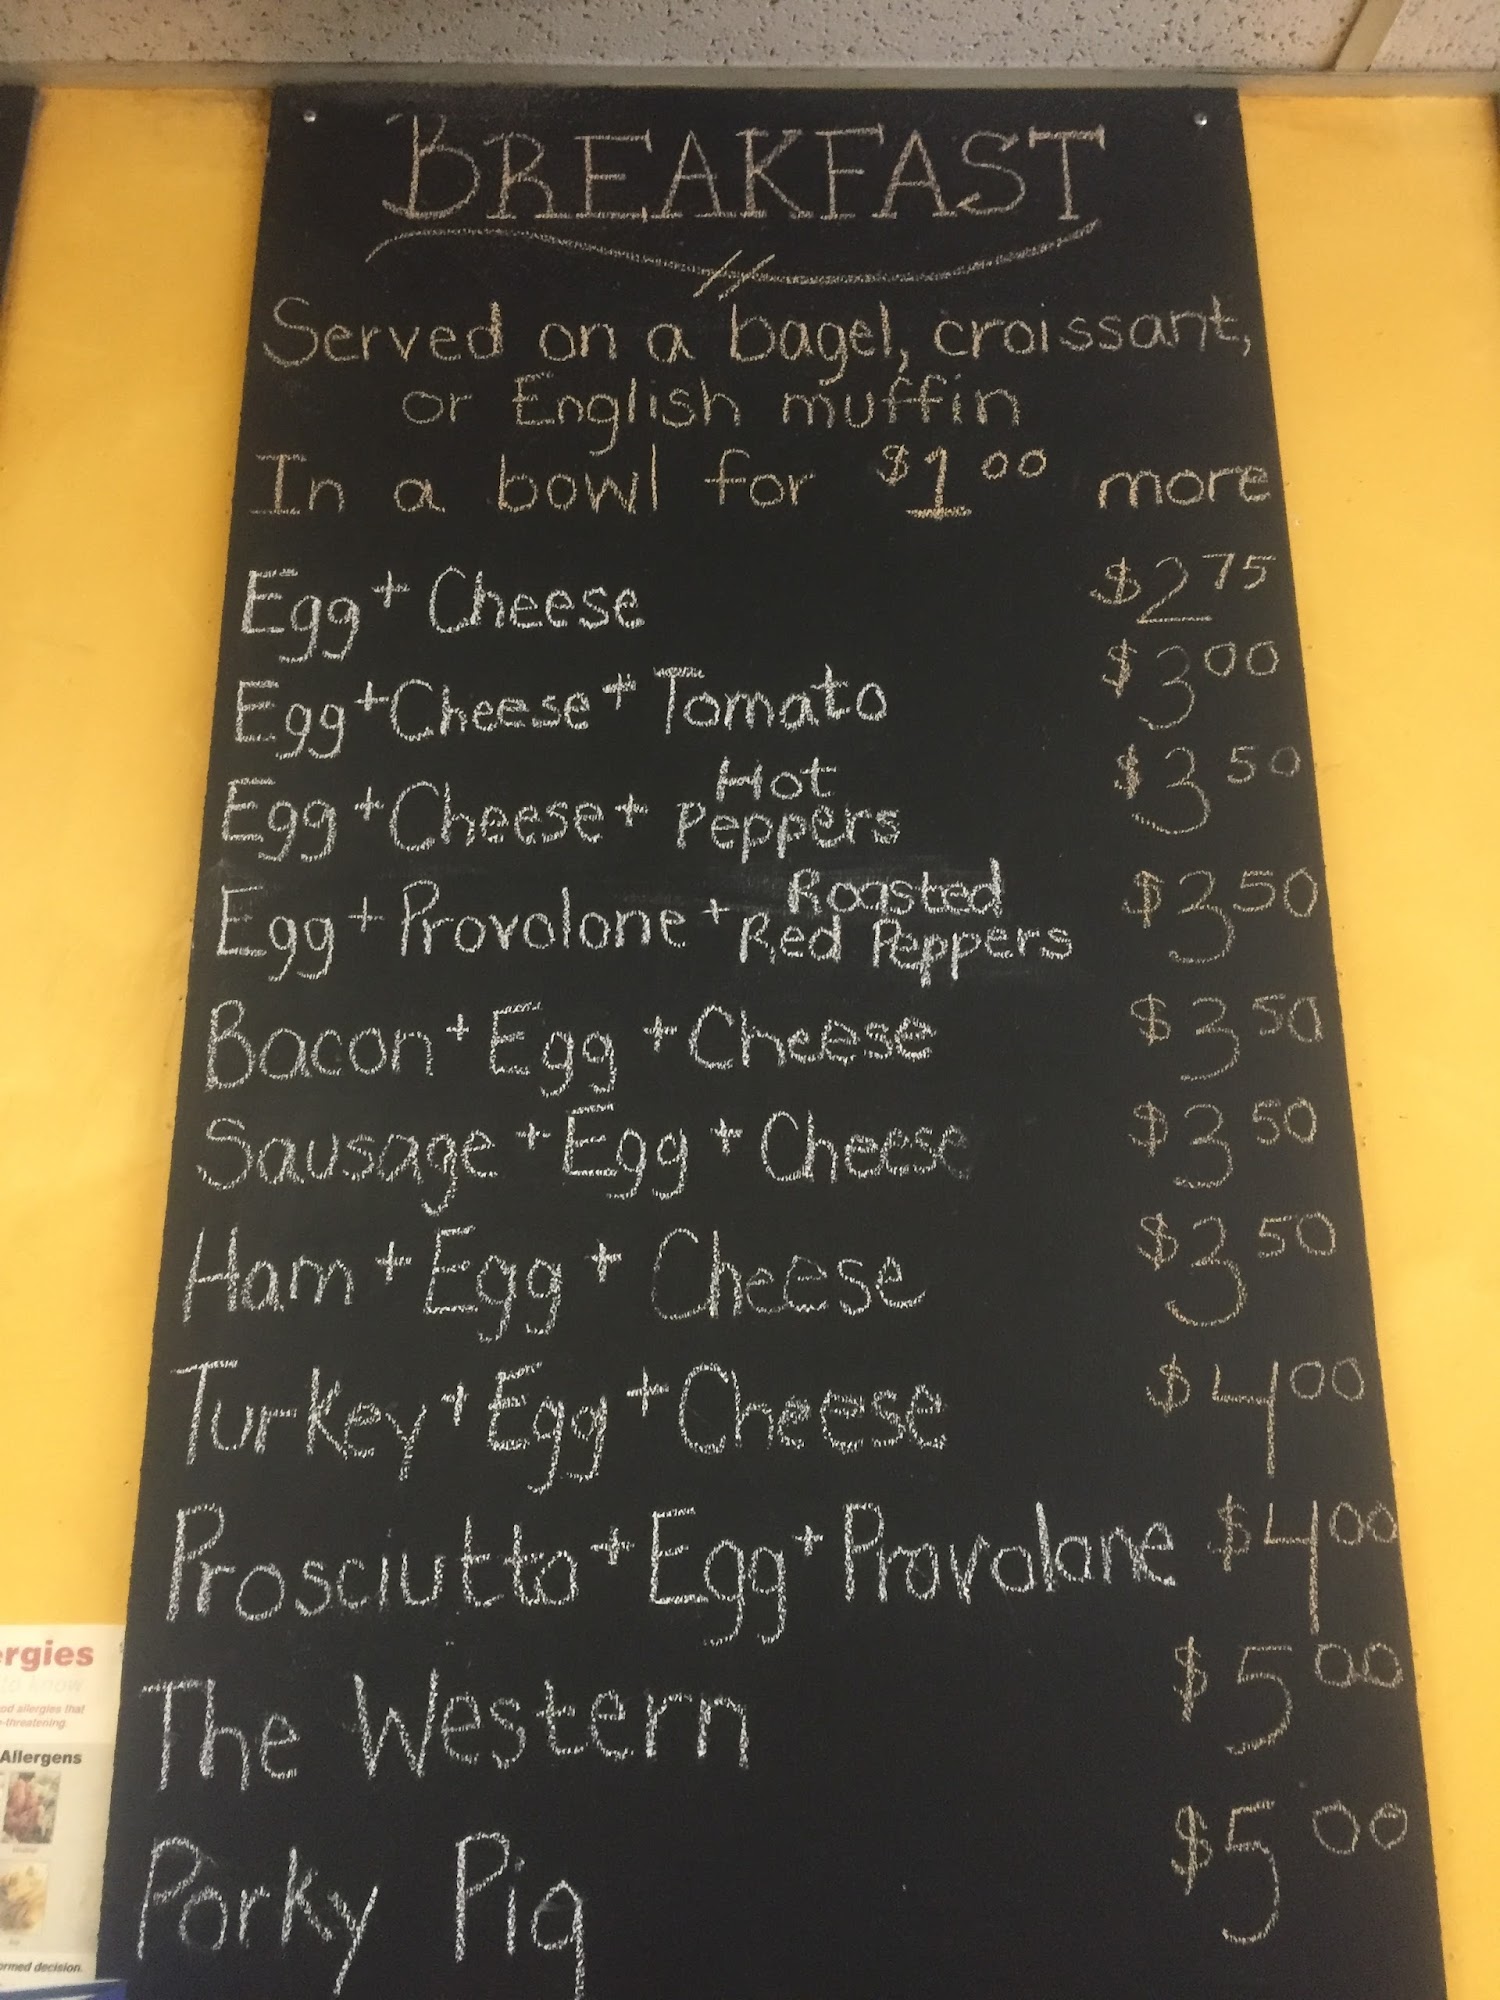 BREAKFAST
Served on a bagel, croissant,
or English muffin
In a bowl for $1.00 more
Egg + Cheese $2.75
Egg + Cheese + Tomato $3.00
Egg + Cheese + Hot Peppers $3.50
Egg + Provolone + Roasted Red Peppers $3.50
Bacon + Egg + Cheese $3.50
Sausage + Egg + Cheese $3.50
Ham + Egg + Cheese $3.50
Turkey + Egg + Cheese $4.00
Prosciutto + Egg + Provolane $4.00
The Western $5.00
Porky Pig $5.00
ergies
to know
od allergies that
-threatening.
Allergens
ormed decision.